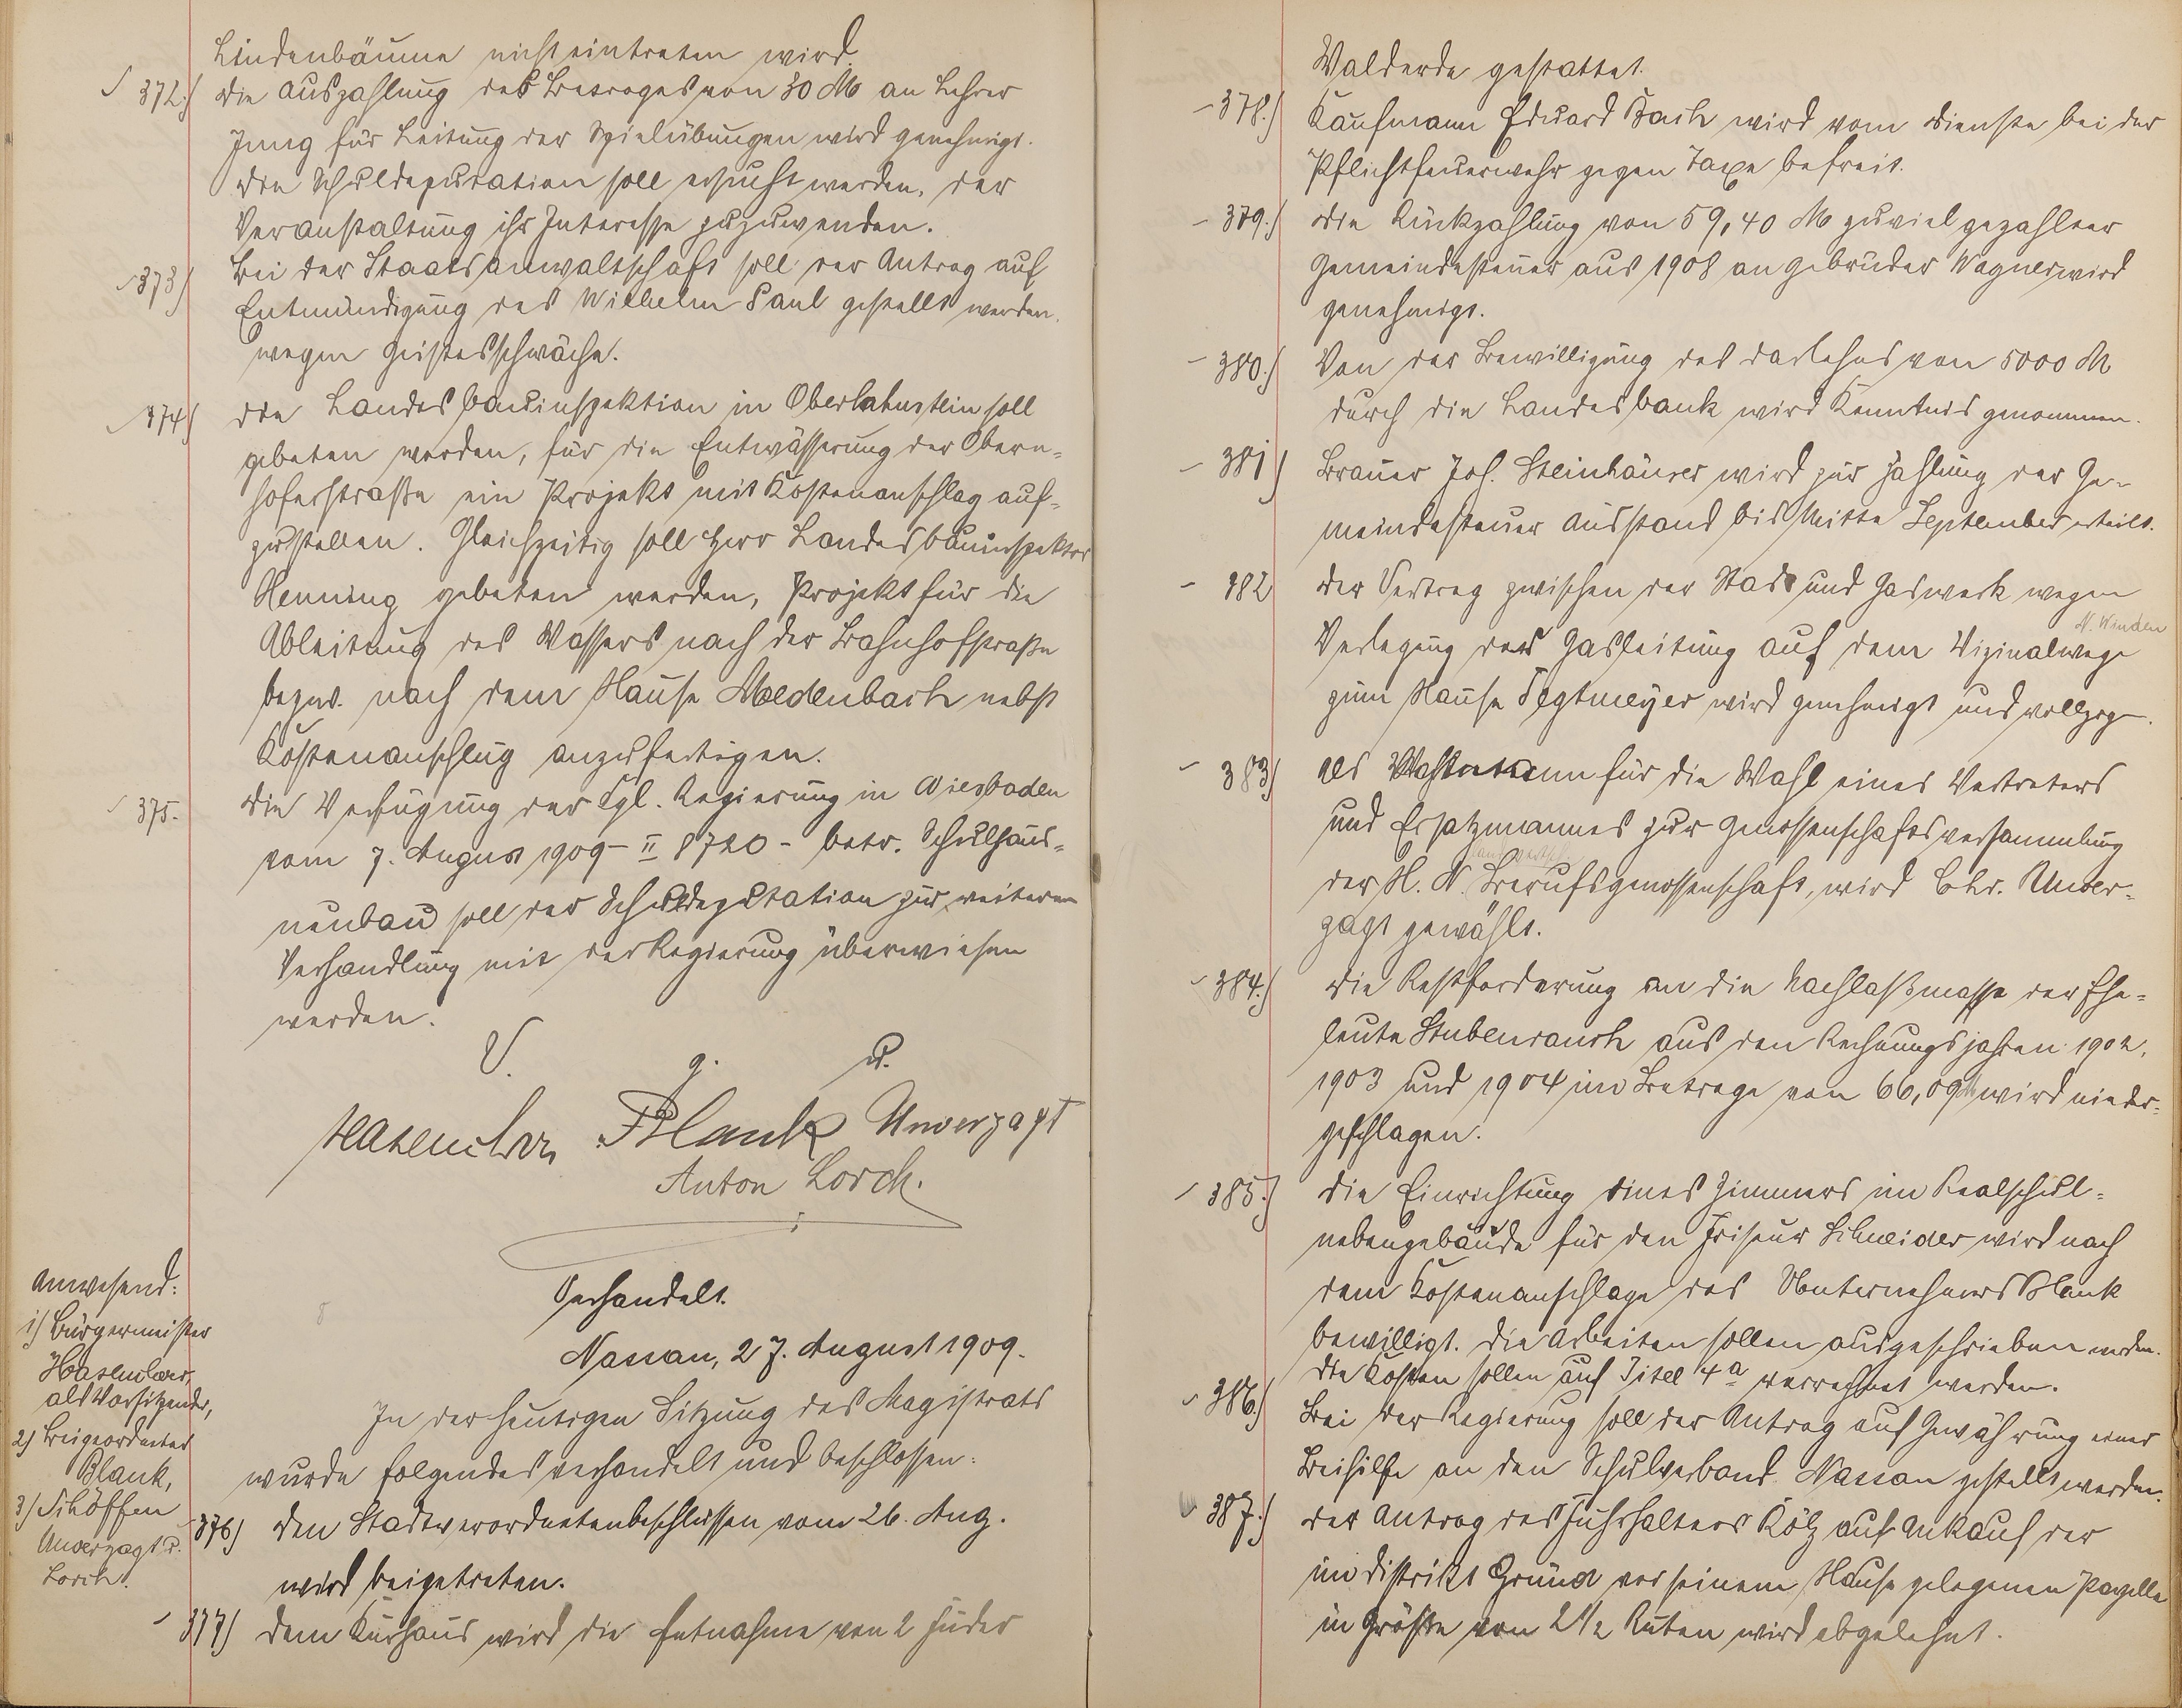 Lindenbäume nicht eintreten wird.
372.) Die Auszahlung des Betrages von 30 M an Lehrer
Jung für Leitung der Spielübungen wird genehmigt.
Die Schuldeputation soll ersucht werden, der
Veranstaltung ihr Interesse zuzuwenden.
373) Bei der Staatsanwaltschaft soll der Antrag auf
Entmündigung des Wilhelm Paul gestellt werden
wegen Geistesschwäche.
374) Die Landesbauinspektion in Oberlahnstein soll
gebeten werden, für die Entwässerung der Obern-
hoferstraße ein Projekt mit Kostenanschlag auf-
zustellen. Gleichzeitig soll Herr Landesbauinspektor
Henning gebeten werden, Projekt für die
Ableitung des Wassers nach der Bahnhofstraße
bezw. nach dem Hause Medenbach nebst
Kostenanschlag anzufertigen.
375. Die Verfügung der Kgl. Regierung in Wiesbaden
vom 7. August 1909 - II 8720 - betr. Schulhaus-
neubau soll der Schuldeputation zur weiteren
Verhandlung mit der Regierung überwiesen
werden.
V. g. u.
Hasenclever Blank Unverzagt
Anton Lorch.
Verhandelt.
Nassau, 27. August 1909.
Anwesend:
1) Bürgermeister
Hasenclever,
als Vorsitzender,
2) Beigeordneter
Blank,
3) Schöffen
Unverzagt u.
Lorch.
In der heutigen Sitzung des Magistrats
wurde folgendes verhandelt und beschlossen:
376) Den Stadtverordnetenbeschlüssen vom 26. Aug.
wird beigetreten.
377) Dem Kurhaus wird die Entnahme von 2 Fuder
Walderde gestattet.
378.) Kaufmann Eduard Bach wird vom Dienste bei der
Pflichtfeuerwehr gegen Taxe befreit.
379.) Die Rückzahlung von 59,40 M zuviel gezahlter
Gemeindesteuer aus 1908 an Gebrüder Wagner wird
genehmigt.
380.) Von der Bewilligung des Darlehns von 5000 M
durch die Landesbank wird Kenntnis genommen.
381) Brauer Joh. Steinhäuser wird zur Zahlung der Ge-
meindesteuer Ausstand bis Mitte September erteilt.
382 Der Vertrag zwischen der Stadt und Gaswerk wegen
N. Winden
Verlegung der Gasleitung auf dem Vizinalwege
zum Hause Tegtmeyer wird genehmigt und vollzogen.
383) Als Wahlmann für die Wahl eines Vertreters
und Ersatzmannes zur Genossenschaftsversammlung
der H. N. Berufsgenossenschaft, wird Chr. Unver-
zagt gewählt.
384.) Die Restforderung an die Nachlaßmasse der Ehe-
leute Stubenrauch aus den Rechnungsjahren 1902,
1903 und 1904 im Betrage von 66,09 M wird nieder-
geschlagen.
385.) Die Einrichtung eines Zimmers im Realschul-
nebengebäude für den Friseur Schneider wird nach
dem Kostenanschlage des Unternehmers Blank
bewilligt. Die Arbeiten sollen ausgeschrieben werden.
Die Kosten sollen auf Titel 4a verrechnet werden.
386.) Bei der Regierung soll der Antrag auf Gewährung einer
Beihilfe an den Schulverband Nassau gestellt werden.
387.) Der Antrag des Fuhrhalters Kölz auf Ankauf der
im Distrikt Grund vor seinem Hause gelegenen Parzelle
in Größe von 2 1/2 Ruten wird abgelehnt.